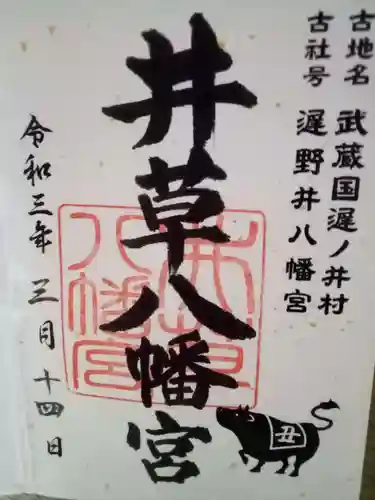 古地名 武蔵国遅ノ井村
古社号 遅野井八幡宮
井草八幡宮
令和三年三月十四日
丑
井草八幡宮